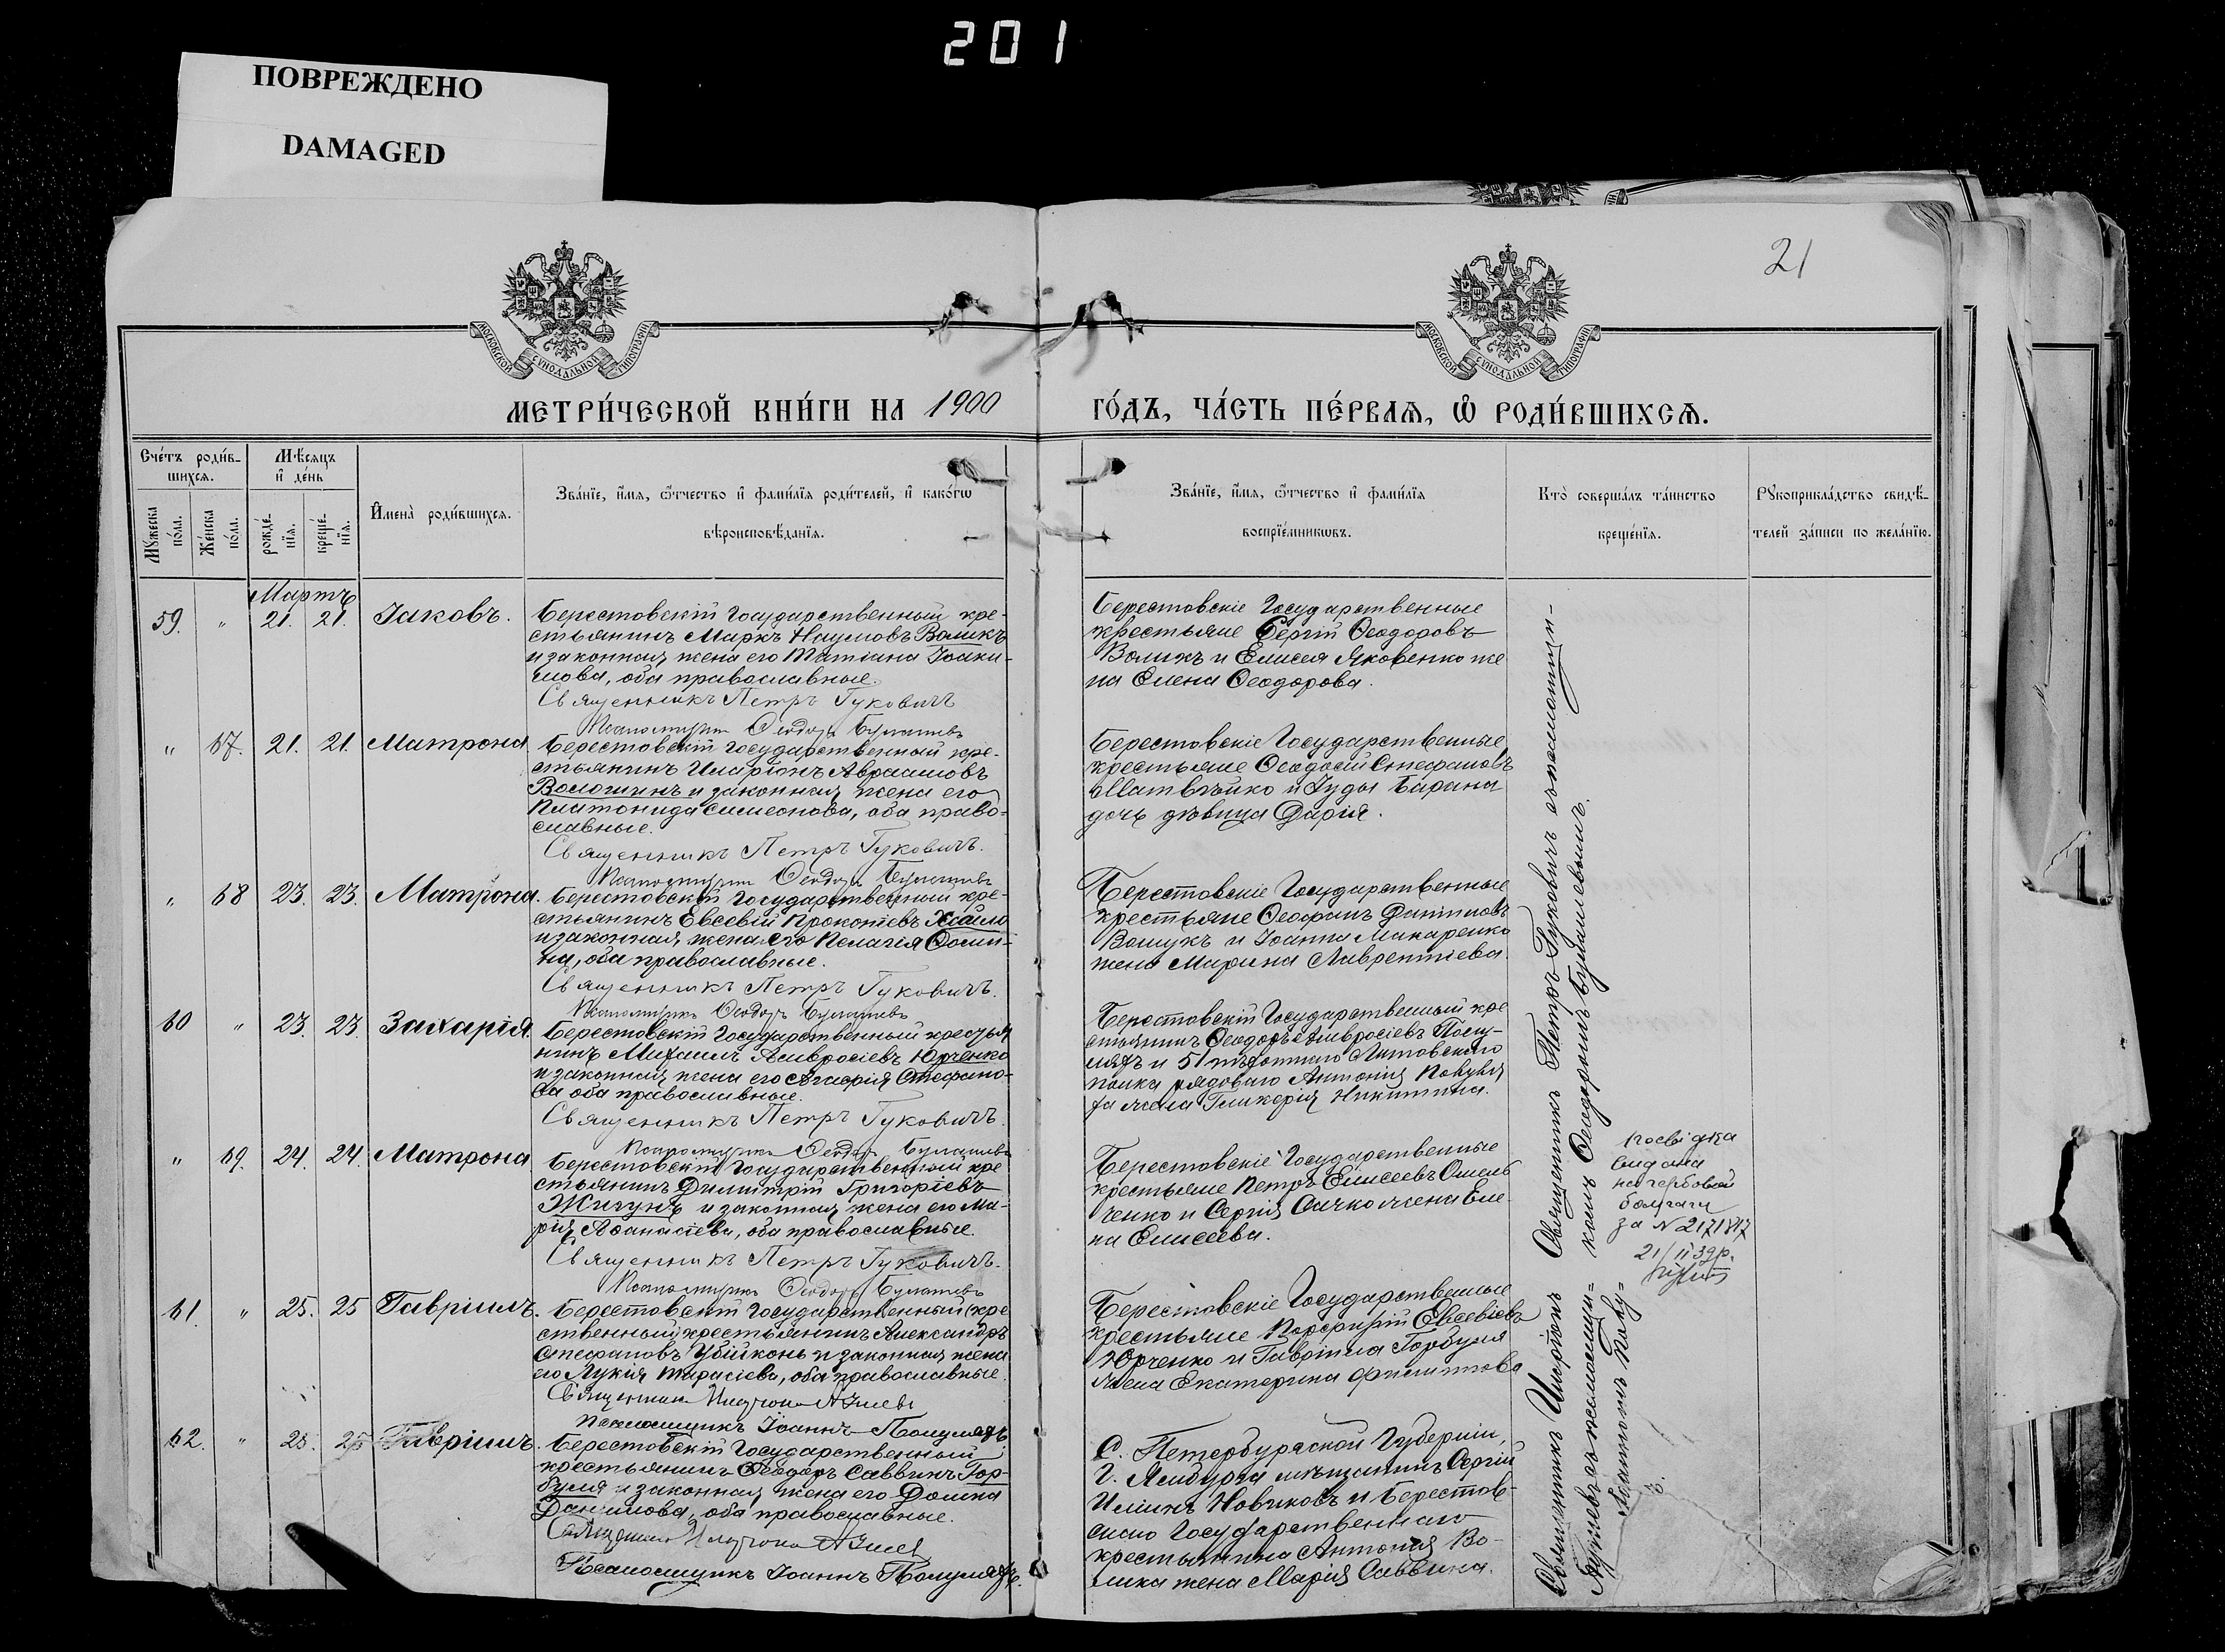 201
ПОВРЕЖДЕНО
DAMAGED
21
МОСКОВСКОЙ СУНОДАЛЬНОЙ ТИПОГРАФІИ
МОСКОВСКОЙ СУНОДАЛЬНОЙ ТИПОГРАФІИ
МЕТРИ́ЧЕСКОЙ КНИ́ГИ НА 1900
ГО́ДЪ, ЧА́СТЬ ПЕ́РВАѦ, Ѽ РОДИ́ВШИХСѦ.
Сче́тъ роди́в-
шихсѧ.
Мѣ́сѧцъ
и҆ де́нь
Мꙋ́жеска по́ла.
Же́нска по́ла.
рожде́-
нїѧ.
креще́-
нїѧ.
И҆мена̀ роди́вшихсѧ.
Зва́нїе, и҆́мѧ, ѻ҆́тчество и҆ фами́лїѧ роди́телей, и҆ како́гѡ
вѣроисповѣ́данїѧ.
Зва́нїе, и҆́мѧ, ѻ҆́тчество и҆ фами́лїѧ
воспрїе́мникѡвъ.
Кто̀ соверша́лъ та́инство
креще́нїѧ.
Рꙋкоприкла́дство свидѣ́-
телей за́писи по жела́нїю.
Мартъ
59. " 21. 21. Іаковъ.
Берестовскій Государственный кре-
стьянинъ Маркъ Наумовъ Воликъ
и законная жена его Татіана Іоаки-
мова, оба православные.
Священникъ Петръ Гуковичъ
Псаломщикъ Ѳеодоръ
Берестовскіе Государственные
крестьяне Сергій Ѳеодоровъ
Воликъ и Елисея Яковенко же
на Елена Ѳеодорова.
" 57. 21. 21. Матрона
Берестовскій Государственный кре-
стьянинъ Иларіонъ Авраамовъ
Волошинъ и законная жена его
Платонида Симеонова, оба право-
славные.
Священникъ Петръ Гуковичъ.
Псаломщикъ Ѳеодоръ
Берестовскіе Государственные
крестьяне Ѳеодосій Стефановъ
Матвѣйко и Іуды Барана
дочь дѣвица Дарія.
" 58 23. 23. Матрона.
Берестовскій Государственный кре-
стьянинъ Евсевій Прокопіевъ
и законная жена его Пелагія Ѳоми-
на, оба православные.
Священникъ Петръ Гуковичъ.
Псаломщикъ Ѳеодоръ
Берестовскіе Государственные
крестьяне Ѳеофанъ Даниловъ
и Іоанна Макаренко
жена Марина Лаврентіева.
60 " 23. 23. Захарія.
Берестовскій Государственный крестья
нинъ Михаилъ Амвросіевъ Юрченко
и законная жена его Стефано-
ва оба православные.
Священникъ Петръ Гуковичъ.
Псаломщикъ Ѳеодоръ
Берестовскій Государственный кре
стьянинъ Ѳеодоръ Амвросіевъ Полу-
мядъ и 51 пѣхотнаго Литовскаго
полка рядоваго Антонія
жена Гликерія Никитина.
" 59. 24. 24. Матрона
Берестовскій Государственный кре
стьянинъ Димитрій Григоріевъ
Жигунъ и законная жена его Ма-
рія Аѳанасіева, оба православные.
Священникъ Петръ Гуковичъ.
Псаломщикъ Ѳеодоръ
Берестовскіе Государственные
крестьяне Петръ Елисеевъ Омель
ченко и Сергія Сичко жена Еле
на Елисеева.
посвідка
видана
на гербовой
за №
61. " 25. 25 Гавріилъ.
Берестовскій Государственный (кре
ственный) крестьянинъ Александръ
Стефановъ Убійконь и законная жена
его Лукія Тарасіева, оба православные.
Священникъ
Псаломщикъ Іоаннъ Полумядъ
Берестовскіе Государственные
крестьяне Порфирій Евсевіевъ
Юрченко и Гавріила Горбуля
жена Екатерина Филиппова
62. " 25. 25 Гавріилъ.
Берестовскій Государственный
крестьянинъ Ѳеодоръ Саввинъ Гор-
буля и законная жена его Домна
Данилова, оба православные.
Священникъ
Псаломщикъ Іоаннъ Полумядъ.
С. Петербургской Губерніи,
г. Ямбурга мѣщанинъ Сергій
Илiинъ Новиковъ и Берестов-
скаго Государственнаго
крестьянина Антонія Во-
лика жена Марія Саввина.
Священникъ Петръ Гуковичъ съ псаломщи-
комъ Ѳеодоромъ
Священникъ
съ псаломщи=